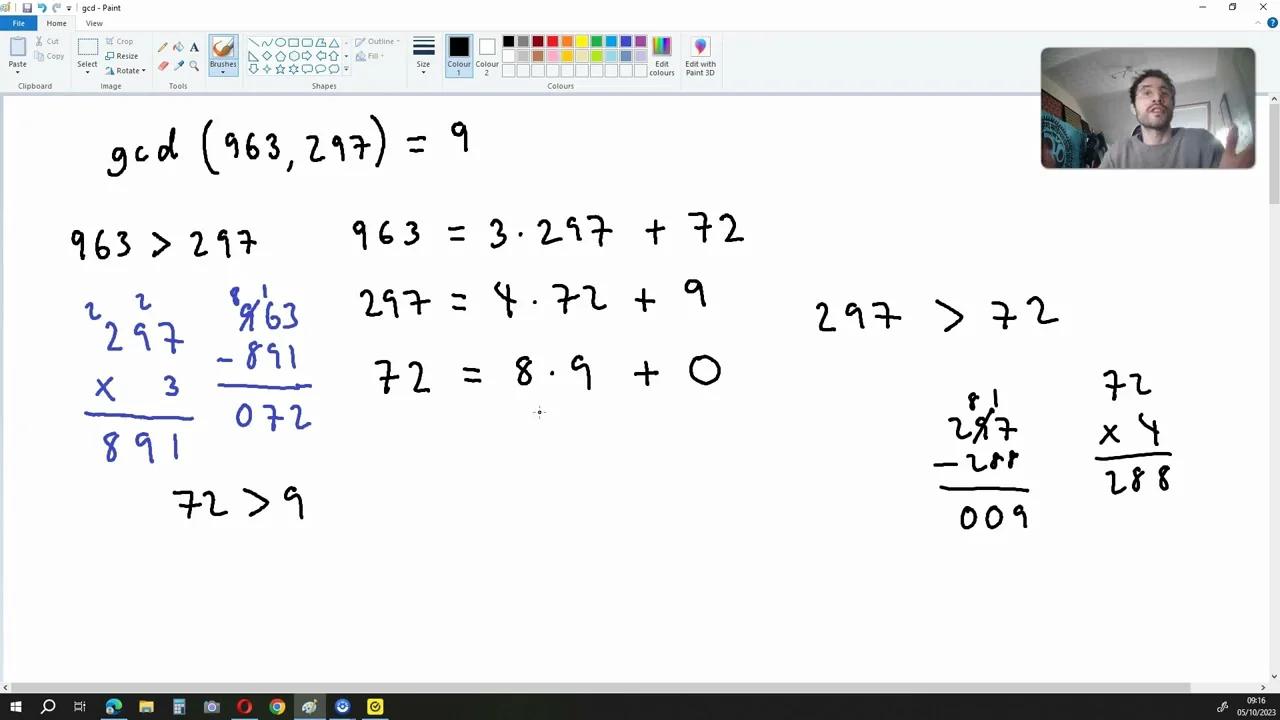 gcd - Paint
File Home View
Paste
Cut
Copy
Clipboard
Select
Crop
Resize
Rotate
Image
Tools
Brushes
Shapes
Outline
Fill
Size
Colour 1
Colour 2
Edit colours
Colours
Edit with Paint 3D
gcd (963, 297) = 9
963 > 297
963 = 3 · 297 + 72
297 = 4 · 72 + 9
72 = 8 · 9 + 0
2 2
297
x 3
891
8 1
963
- 891
072
72 > 9
297 > 72
8 1
297
- 288
009
72
x 4
288
09:16
05/10/2023